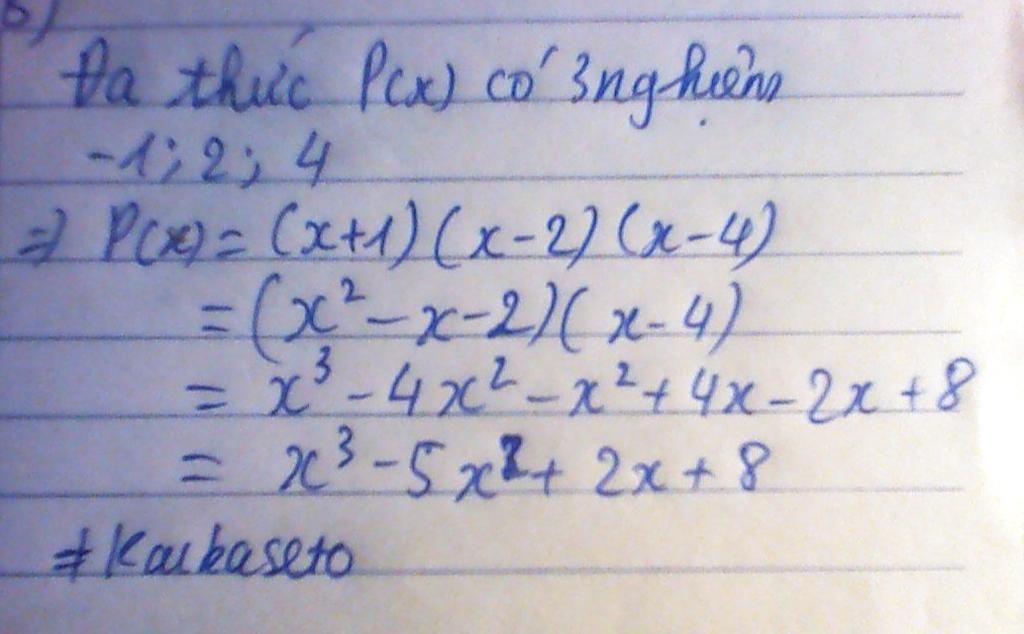 b)
Đa thức P(x) có 3 nghiệm
-1; 2; 4
=> P(x) = (x+1)(x-2)(x-4)
= (x² - x - 2)(x - 4)
= x³ - 4x² - x² + 4x - 2x + 8
= x³ - 5x² + 2x + 8
#Kaibaseto